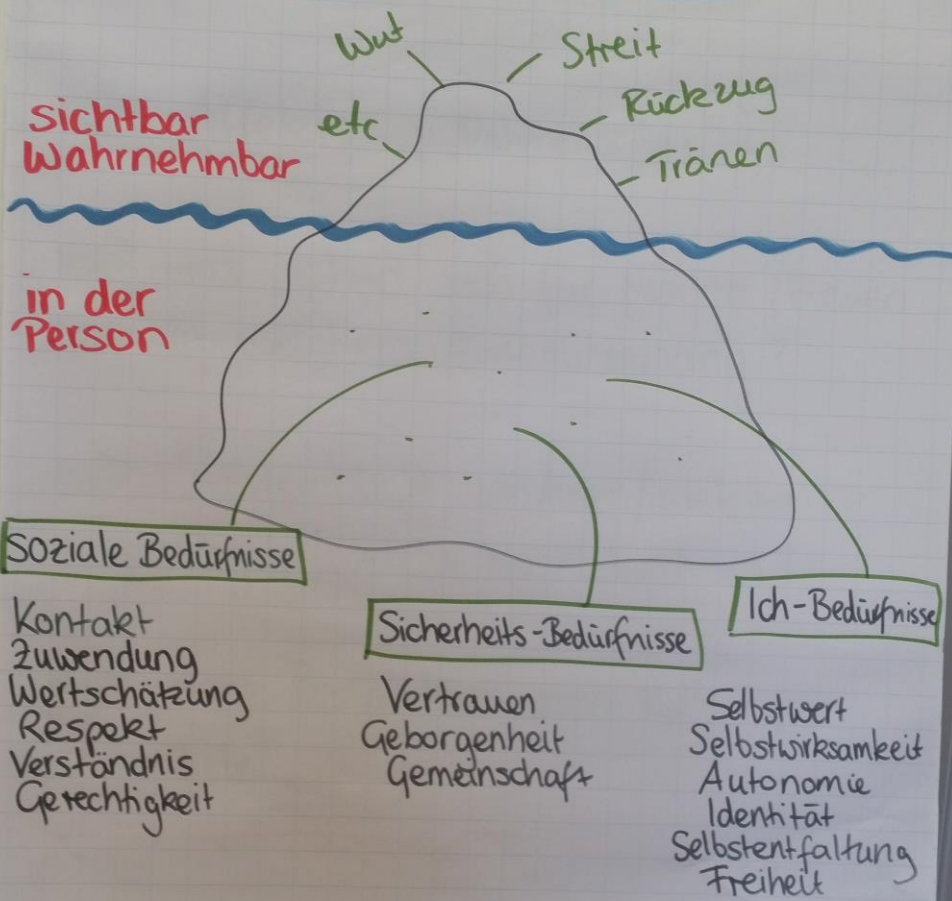 Wut
Streit
Rückzug
etc
Tränen
sichtbar
Wahrnehmbar
in der
Person
Soziale Bedürfnisse
Kontakt
Zuwendung
Wertschätzung
Respekt
Verständnis
Gerechtigkeit
Sicherheits-Bedürfnisse
Vertrauen
Geborgenheit
Gemeinschaft
Ich-Bedürfnisse
Selbstwert
Selbstwirksamkeit
Autonomie
Identität
Selbstentfaltung
Freiheit